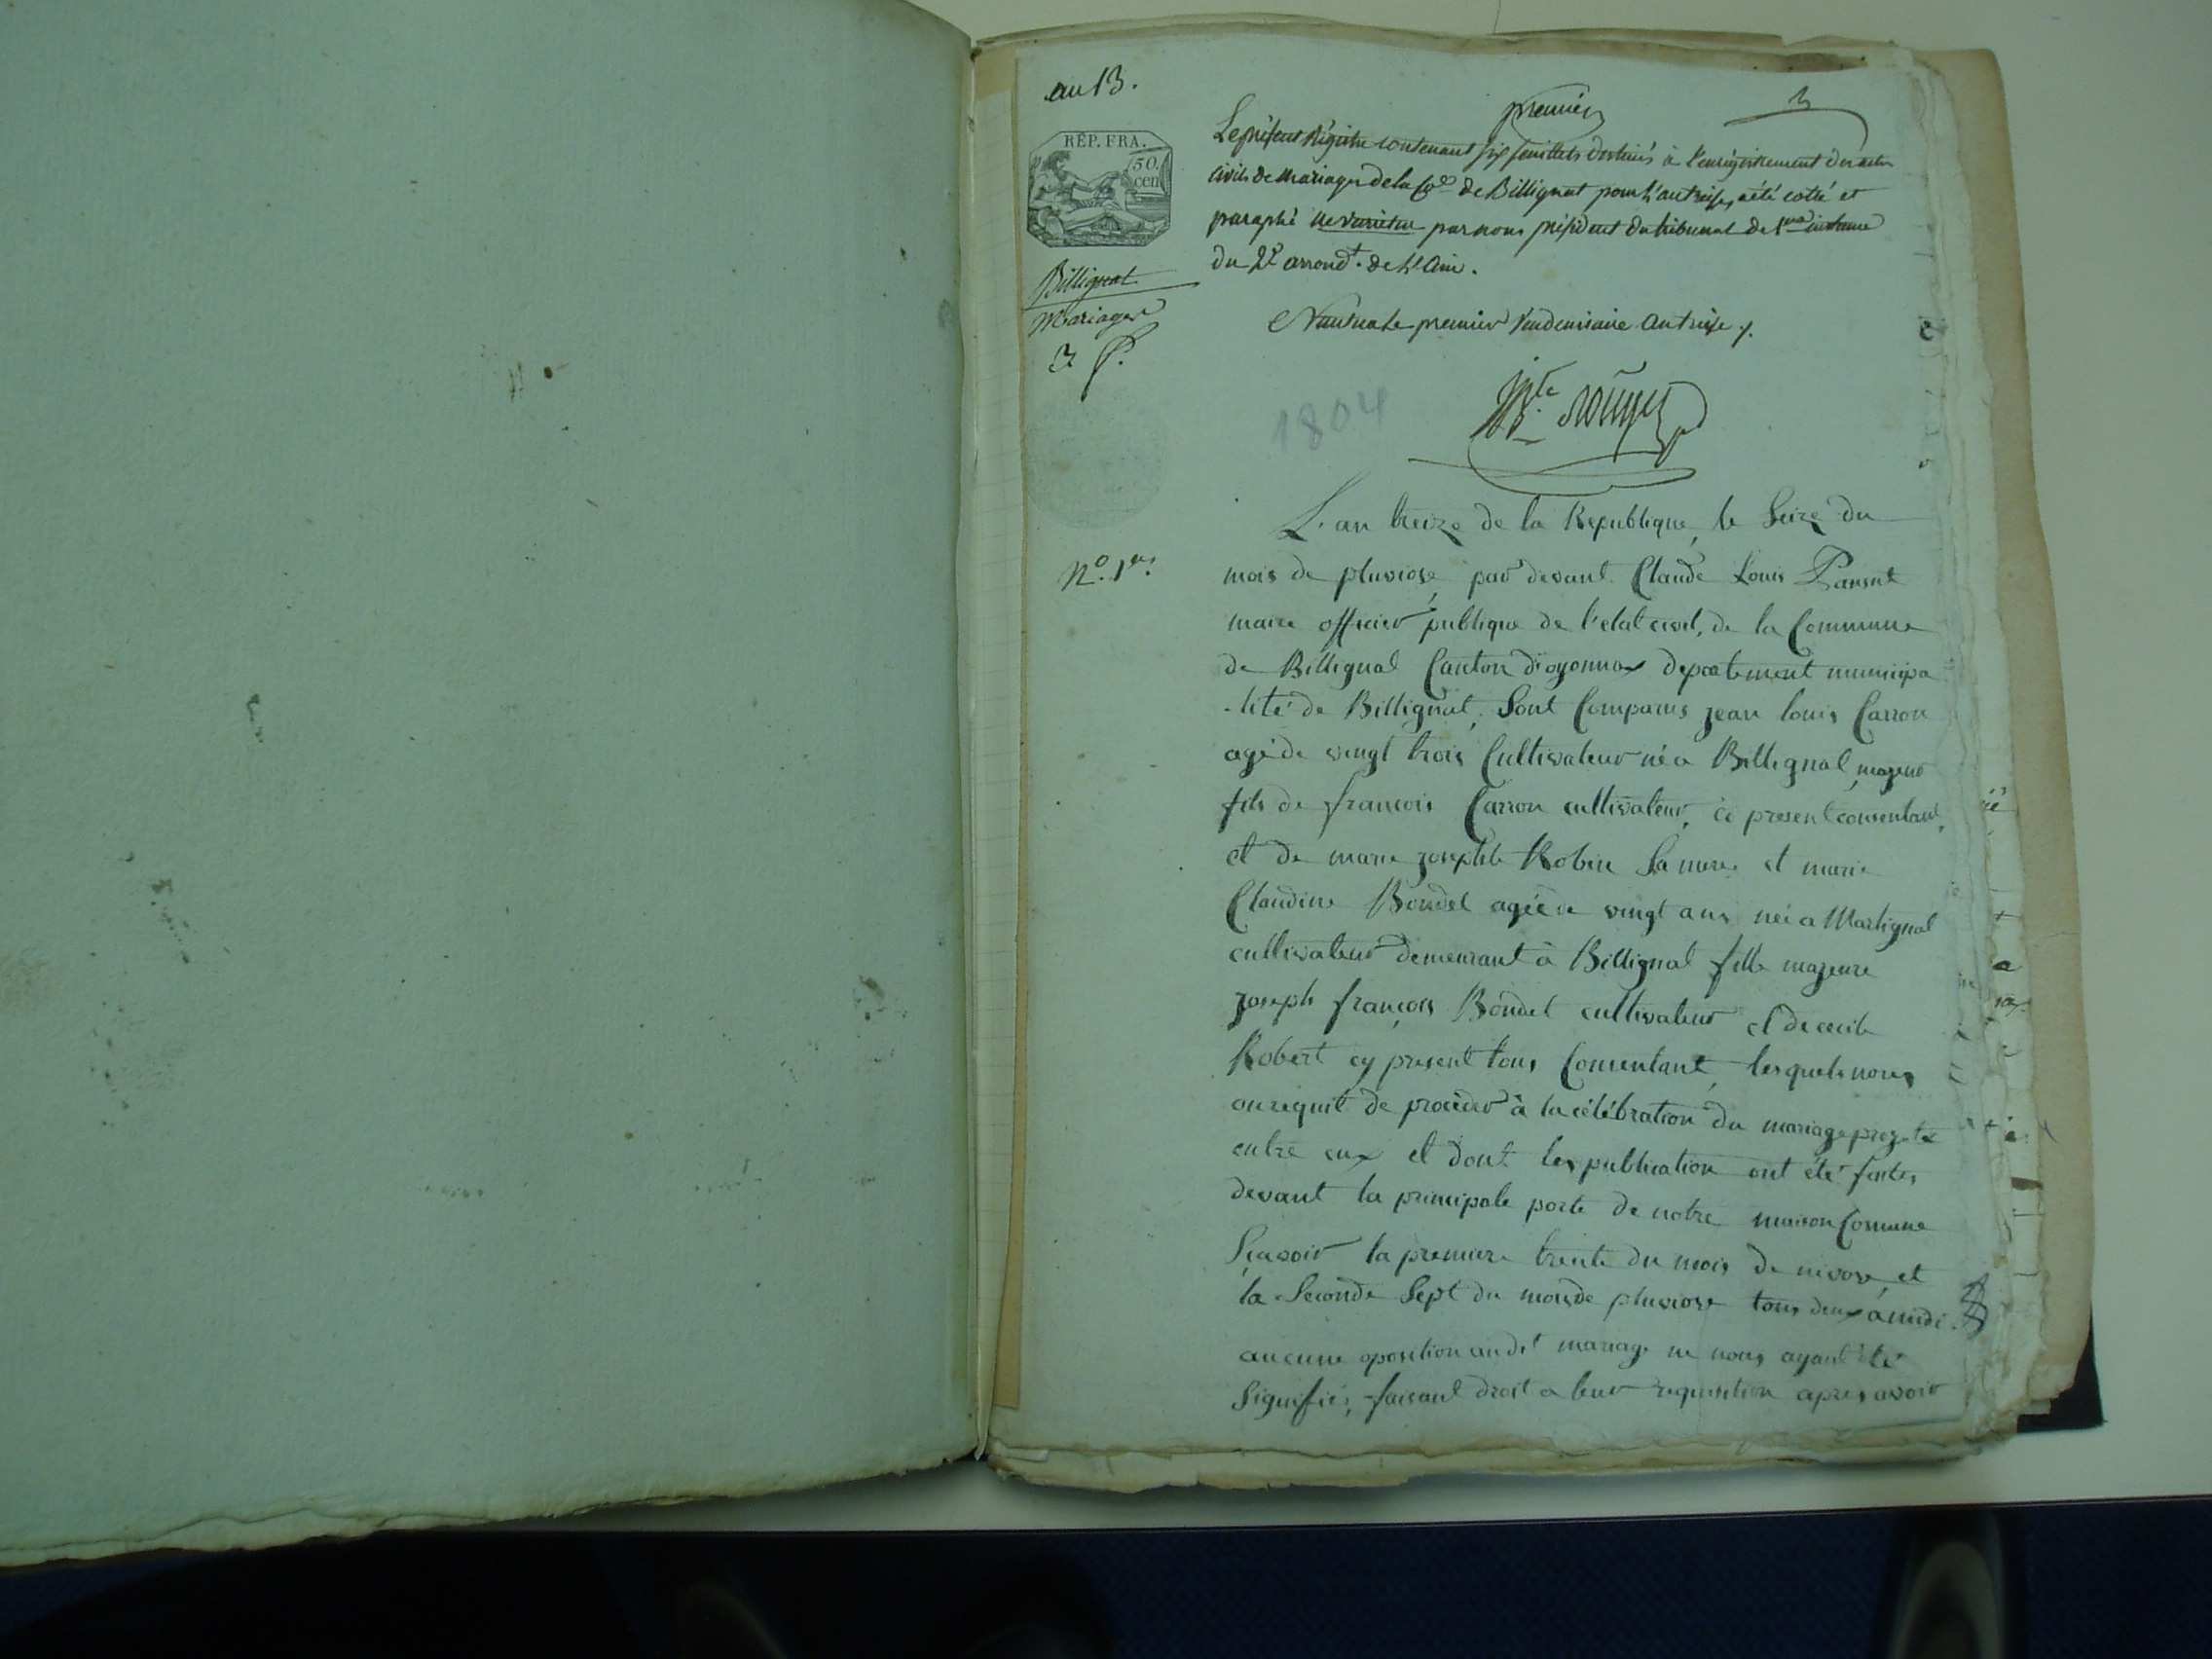 an 13.
premier
RÉP. FRA.
50.
cen
Le présent Régistre contenant six feuillets destinés à l'enrégistrement des actes
civils de mariages de la Cne de Billignat pour l'an treize, a été cotté et
paraphé ne varietur par nous président du tribunal de 1ere instance
du 2e arrondt. de L'Ain.
Billignat
Mariages
Nantua le premier Vendemiaire an treize
1804
No. 1er.
L'an treize de la Republique, le seize du
mois de pluviose, par devant Claude Louis
maire officier publique de l'etat civil, de la Commune
de Billignat Canton d'oyonnax departement municipa
-lité de Billignat, sont Comparus jean louis Carron
agé de vingt trois Cultivateur né a Billignat majeur
fils de françois Carron cultivateur, ci present consentant,
et de marie josephte Robin sa mere et marie
Claudine Bondet agée de vingt ans née a Martignat
cultivateur demeurant à Billignat fille majeure
joseph françois Bondet cultivateur et de cecile
Robert cy present tous Consentant, lesquels nous
on requit de proceder à la célébration du mariage projeté
entre eux et dont les publication ont été faites
devant la principale porte de notre maison Comune
Sçavoir la premiere trente du mois de nivose, et
la Seconde Sept du mois de pluviose tous deux à midi.
aucune oposition audit mariage ne nous ayant été
Signifié, faisant droit a leur requisition apres avoir